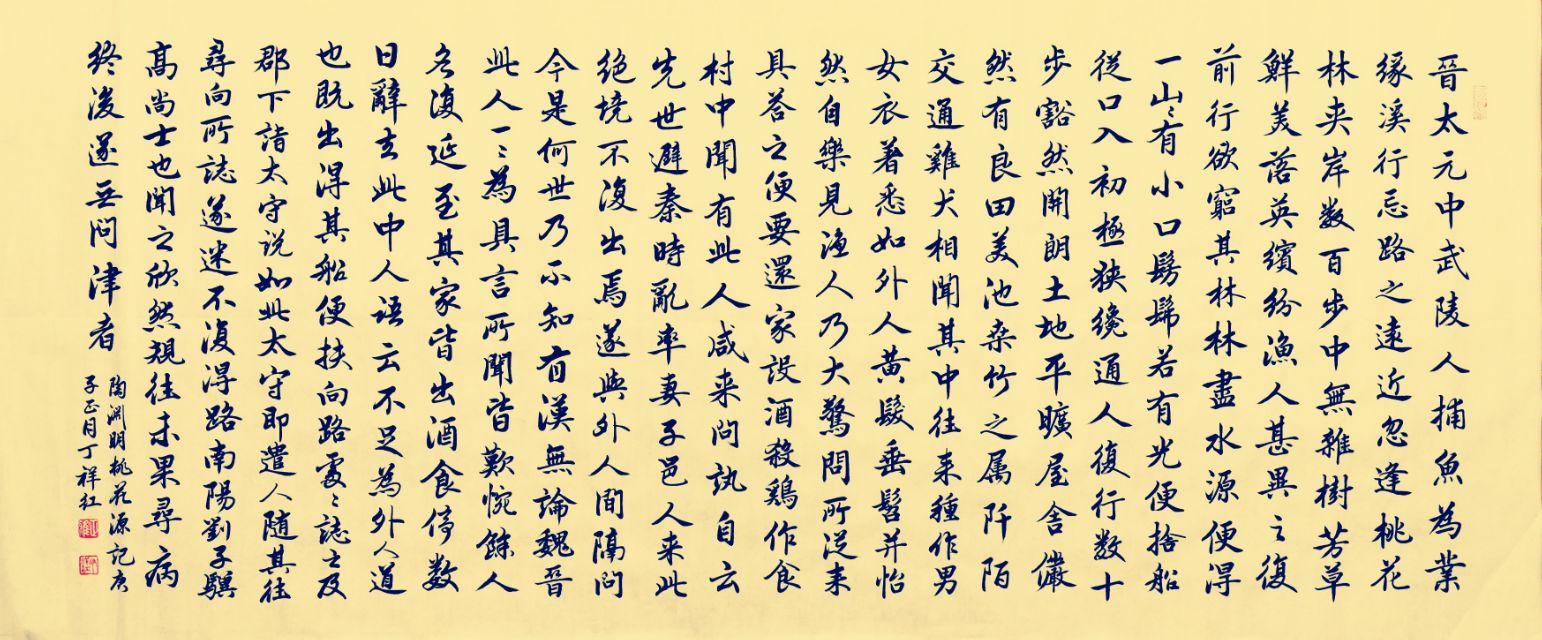 晉太元中武陵人捕魚為業
緣溪行忘路之遠近忽逢桃花
林夹岸数百步中無雜樹芳草
鮮美落英繽紛漁人甚異之復
前行欲窮其林林盡水源便得
一山〻有小口髣髴若有光便捨船
從口入初極狭纔通人復行数十
步豁然開朗土地平曠屋舍儼
然有良田美池桑竹之属阡陌
交通雞犬相聞其中往来種作男
女衣著悉如外人黄髮垂髫并怡
然自樂見漁人乃大驚問所從来
具荅之便要還家設酒殺鷄作食
村中聞有此人咸来问訊自云
先世避秦時亂率妻子邑人来此
绝境不復出焉遂與外人間隔问
今是何世乃不知有漢無論魏晉
此人一〻為具言所聞皆歎惋餘人
各復延至其家皆出酒食停数
日辭去此中人语云不足為外人道
也既出得其船便扶向路處〻誌之及
郡下詣太守说如此太守即遣人随其往
尋向所誌遂迷不復得路南陽劉子驥
高尚士也聞之欣然規往未果尋病
终後遂無问津者
陶渊明桃花源記庚
子正月丁祥红